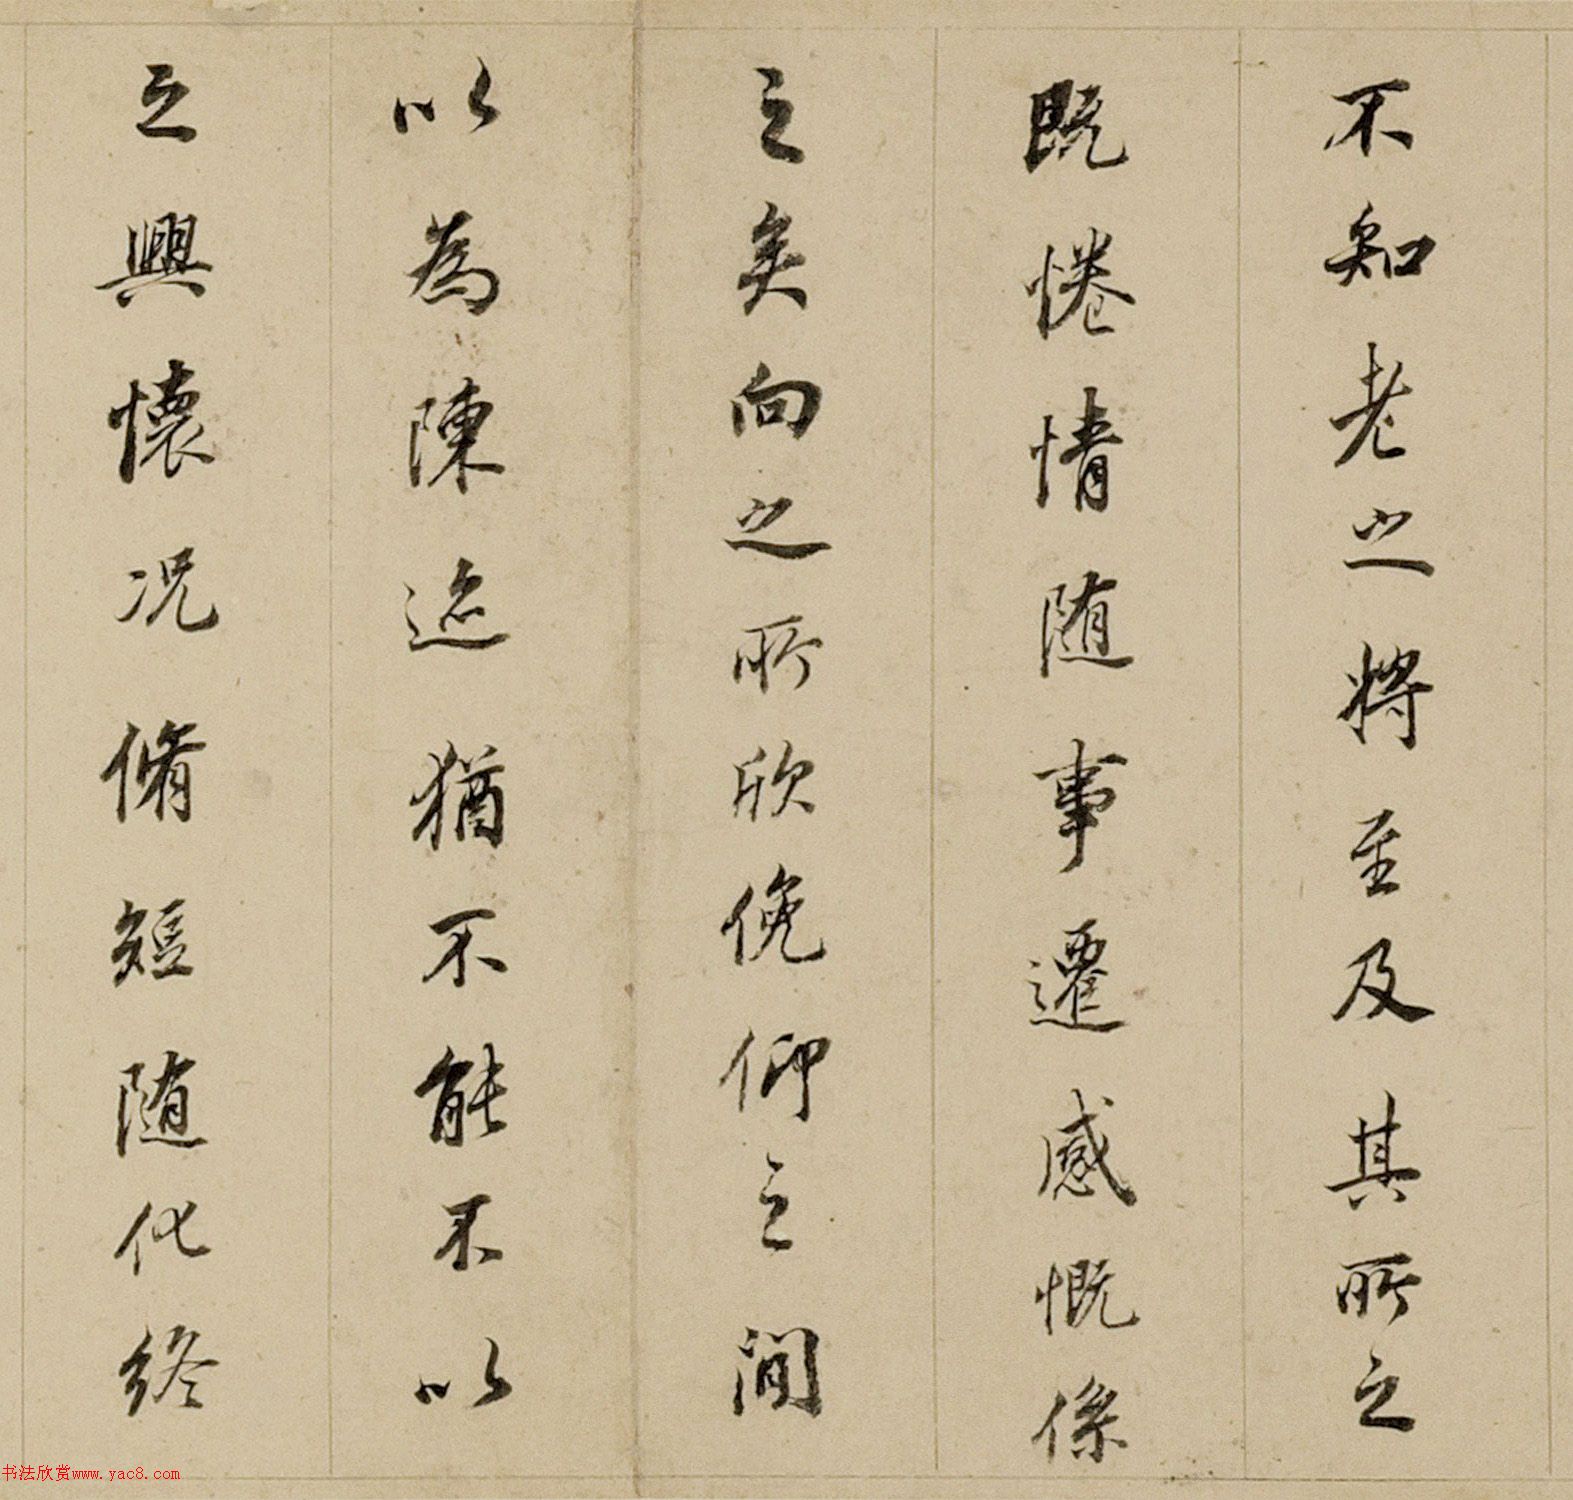 不知老之將至及其所之
既惓情随事遷感慨係
之矣向之所欣俛仰之間
以為陳迹猶不能不以
之興懷况脩短随化終
书法欣赏www.yac8.com